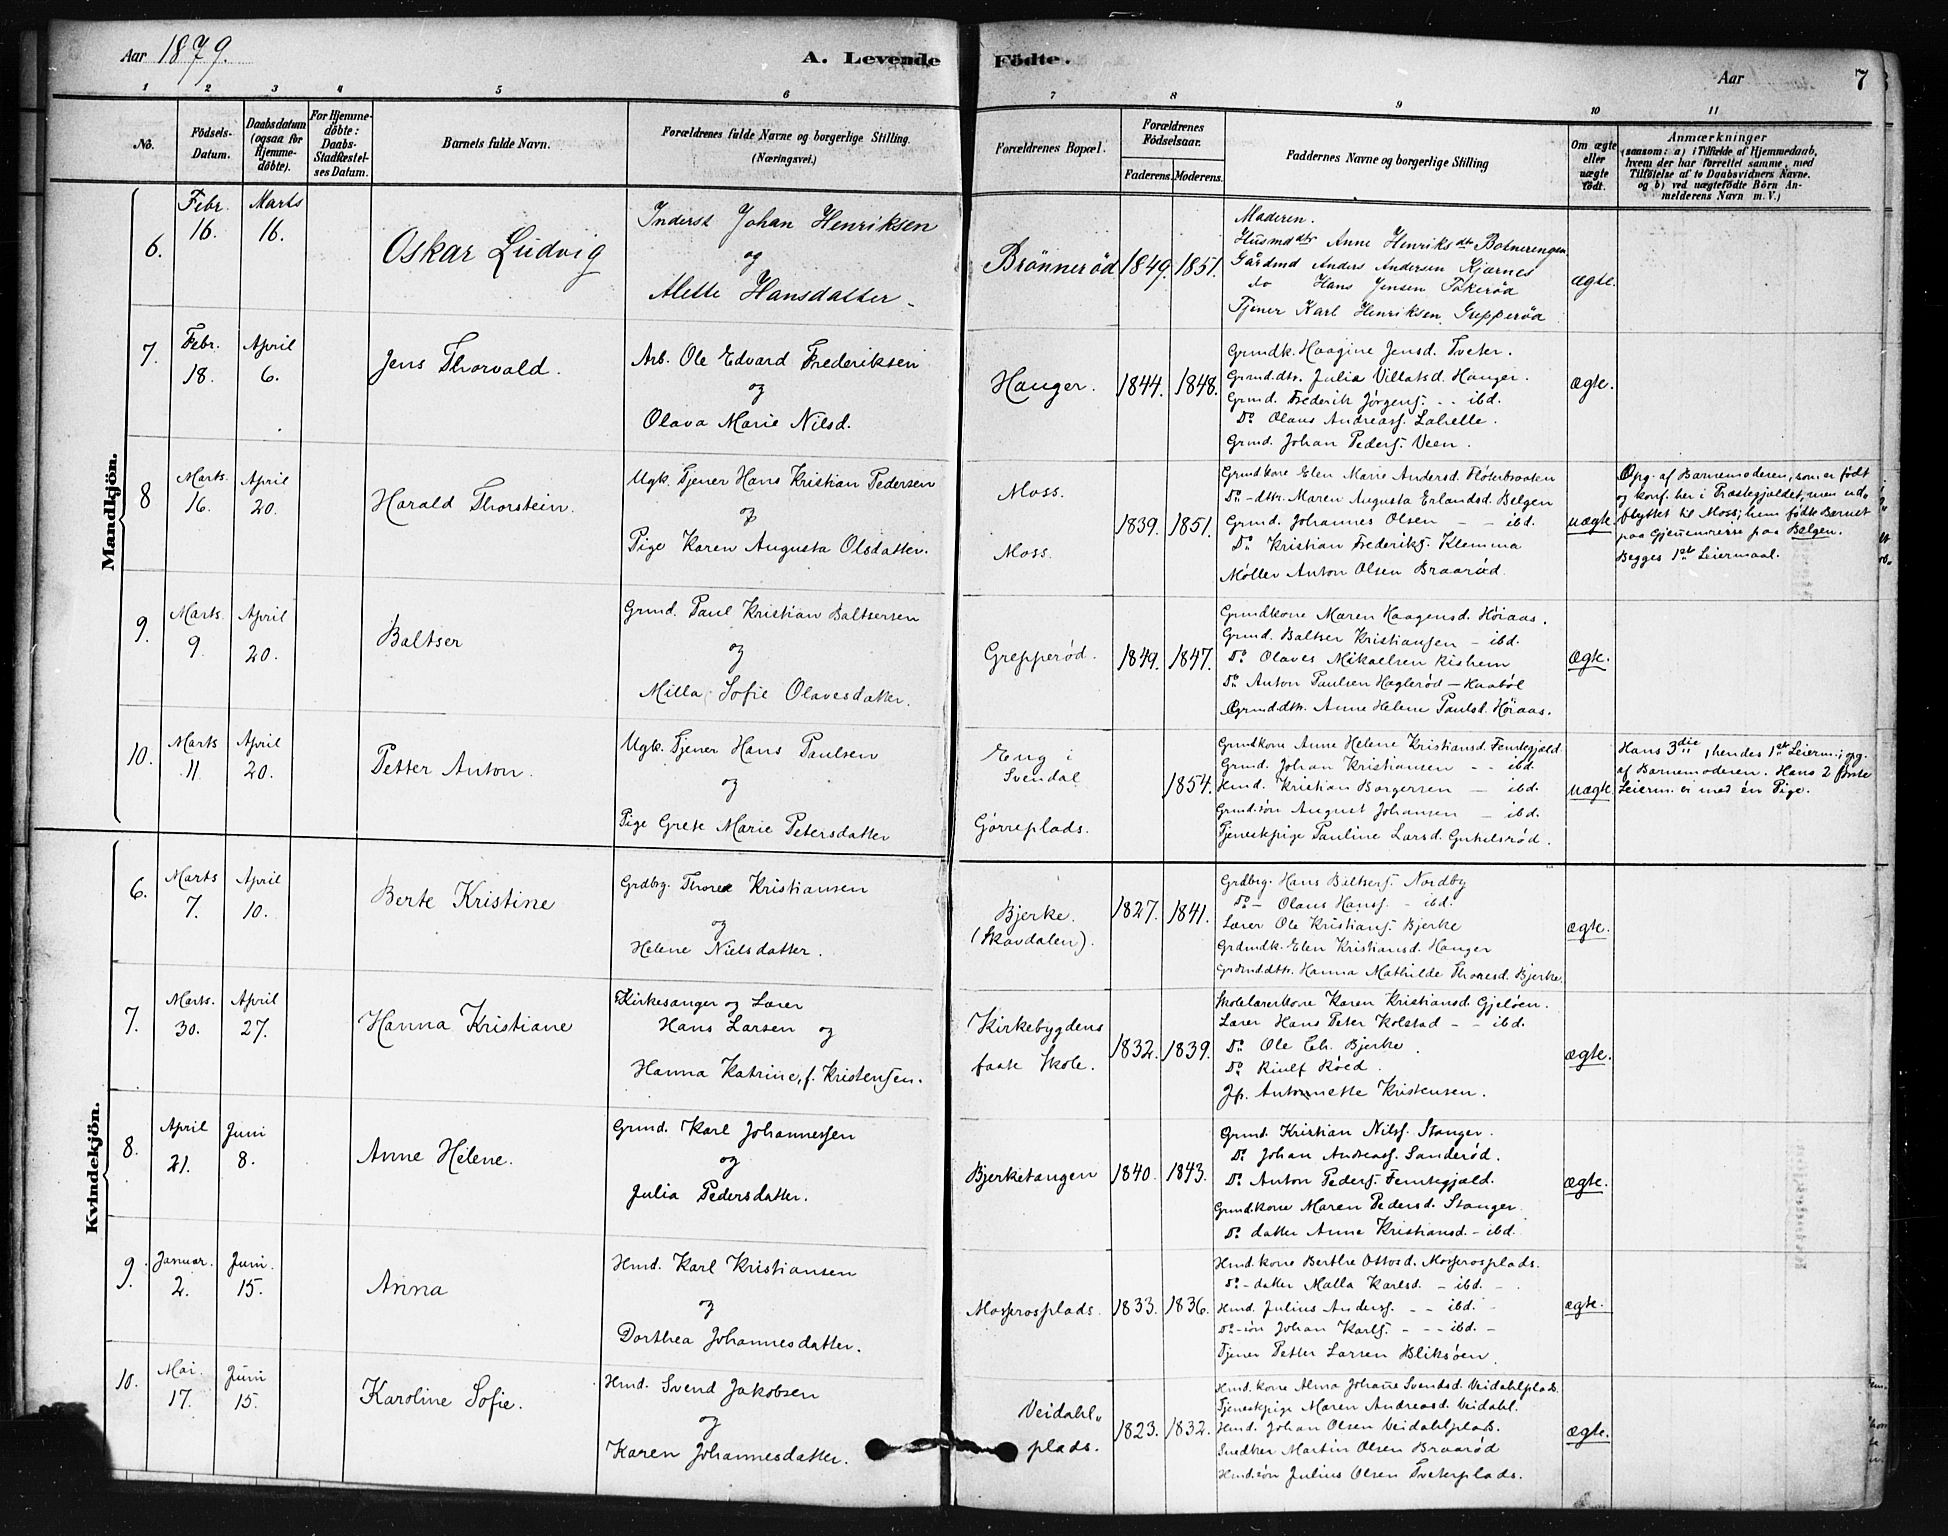 Aar 1879.
A. Levende Födte.
Aar
7
1 2 3 4 5 6 7 8 9 10 11
No.
Födsels-Datum.
Daabsdatum (ogsaa for Hjemme-döbte).
For Hjemme-döbte: Daabs-Stadfæstel-ses Datum.
Barnets fulde Navn.
Forældrenes fulde Navne og borgerlige Stilling. (Næringsvei.)
Forældrenes Bopæl.
Forældrenes Födselsaar.
Faderens. Moderens.
Faddernes Navne og borgerlige Stilling
Om ægte eller uægte födt.
Anmærkninger
(saasom: a) i Tilfælde af Hjemmedaab,
hvem der har forrettet samme, med
Tilföielse af to Daabsvidners Navne.
og b) ved uægtefödte Börn An-
melderens Navn m. V.)
Mandkjön.
6.
Febr. 16.
Marts 16.
Oskar Ludvig
Inderst Johan Henriksen
og
Alette Hansdatter
Brønnerød
1849. 1851.
Moderen.
Husmd dtr Anne Henriksdtr Botnerengen
Gårdmd Anders Andersen Kjærnes
do Hans Jensen Takerød
Tjener Karl Henriksen Grepperød
ægte.
7.
Febr. 18.
April 6.
Jens Thorvald.
Arb. Ole Edvard Frederiksen
og
Olava Marie Nilsd.
Hauger.
1844. 1848.
Grundk. Haagine Jensd. Tveter.
Grund.dtr. Julia Villatsd. Hauger.
Grund. Frederik Jørgens. - ibd.
Do Olaus Andreass. Labelle.
Grund. Johan Peders. Veen.
ægte.
8
Marts. 16.
April 20.
Harald Thorstein.
Ugk. Tjener Hans Kristian Pedersen
og
Pige Karen Augusta Olsdatter.
Moss.
Moss.
1839. 1851.
Grundkone Elen Marie Andersd. Fløterbraaten
Do - dtr. Maren Augusta Erlandsd. Belgen
Grund. Johannes Olsen - - ibd.
Do Kristian Frederiks. Klemma
Møller Anton Olsen Braarød.
uægte.
Opg. af Barnemoderen, som er født
og konf. her i Præstegjældet, men ud-
flyttet til Moss; hun fødte Barnet
paa Gjennemreise paa Belgen.
Begges 1ste Leiermaal.
9.
Marts. 9.
April 20.
Baltser
Grund. Paul Kristian Baltsersen
og
Milla Sofie Olavesdatter.
Grepperød.
1849. 1847.
Grundkone Maren Haagensd. Høiaas.
Grund. Baltser Kristiansen - ibd.
Do. Olaves Mikaelsen Kishem
Do. Anton Paulsen Haglerød - Kaabøl
Grund.dtr. Anne Helene Paulsd. Høiaas.
ægte.
10.
Marts 11.
April 20.
Petter Anton.
Ugk. Tjener Hans Paulsen
og
Pige Grete Marie Petersdatter
Eng i Svendal
Gjørreplads.
1854.
Grundkone Anne Helene Kristiansd. Femtegjæld
Grund. Johan Kristiansen - - ibd.
Hmd. Kristian Borgersen - ibd.
Grund.søn August Johansen - ibd.
Tjenestepige Pauline Larsd. Gukelsrød.
uægte.
Hans 3die, hendes 1ste Leierm.; opg.
af Barnemoderen. Hans 2 første
Leierm. er med én Pige.
Kvindekjön.
6.
Marts 7.
April 10.
Berte Kristine
Grdbrg. Thore Kristiansen
og
Helene Nielsdatter.
Bjerke.
(Skovdalen).
1827. 1841.
Grdbrg. Hans Baltsers. Nordby
Do - Olaus Hans. - ibd.
Lærer Ole Kristians. Bjerke
Grdmdk. Elen Kristiansd. Hauger
Grdmd.dtr. Hanna Mathilde Thoresd. Bjerke.
ægte.
7.
Marts. 30.
April 27.
Hanna Kristiane
Kirkesanger og Lærer
Hans Larsen og
Hanna Katrine, f. Kristensen.
Kirkebygdens
faste Skole.
1832. 1839.
Skolelærerkone Karen Kristiansd. Gjeløen.
Lærer Hans Peter Kolstad - - ibd.
Do. Ole Ch. Bjerke.
Do. Riulf Røed.
Jfr. Antonnette Kristensen.
ægte.
8.
April 21.
Juni 8.
Anne Helene.
Grund. Karl Johannessen
og
Julia Pedersdatter.
Bjerketangen
1840. 1843.
Grund. Kristian Nils. Stanger.
Do. Johan Andreass. Sanderød.
Do. Anton Peders. Femtegjæld.
Grund.kone Maren Pedersd. Stanger.
Do. datter Anne Kristiansd. - ibd.
ægte.
9.
Januar. 2.
Juni. 15.
Anna
Hmd. Karl Kristiansen
og
Dorthea Johannesdatter.
Mosserosplads.
1833. 1836.
Hmd. kone Berthe Ottosd. Mosserosplads.
Do - datter Malla Karlsd. - ibd. -
Hmd. Julius Anders. - - ibd.
Do - søn Johan Karls. - - - ibd. -
Tjener Petter Larsen Bliksøen.
ægte.
10.
Mai. 17.
Juni 15.
Karoline Sofie.
Hmd. Svend Jakobsen
og
Karen Johannesdatter.
Veidahl-
plads.
1823. 1832.
Hmd. kone Alma Johanne Svendsd. Veidahlplads.
Tjenestepige Maren Andreasd. Veidahl.
Hmd. Johan Olsen Veidahlplads.
Snedker Martin Olsen Braarød
Hmd.søn Julius Olsen Tveterplads.
ægte.